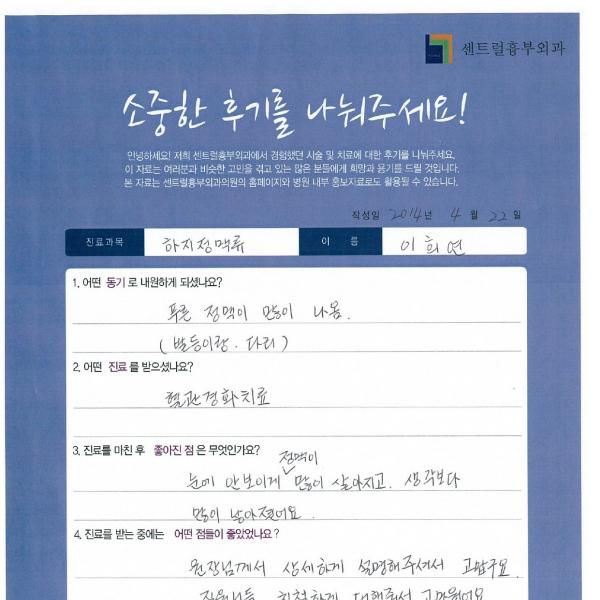 센트럴흉부외과
소중한 후기를 나눠주세요!
안녕하세요! 저희 센트럴흉부외과에서 경험했던 시술 및 치료에 대한 후기를 나눠주세요.
이 자료는 여러분과 비슷한 고민을 겪고 있는 많은 분들에게 희망과 용기를 드릴 것입니다.
본 자료는 센트럴흉부외과의원의 홈페이지와 병원 내부 홍보자료로도 활용될 수 있습니다.
작성일 2014년 4월 22일
진료과목 하지정맥류 이름 이희연
1. 어떤 동기로 내원하게 되셨나요?
푸른 정맥이 많이 나옴.
(발등이랑. 다리)
2. 어떤 진료를 받으셨나요?
혈관경화치료
3. 진료를 마친 후 좋아진 점은 무엇인가요?
정맥이
눈에 안보이게 많이 살아지고. 생각보다
많이 낳아졌어요.
4. 진료를 받는 중에는 어떤 점들이 좋았었나요?
원장님께서 상세하게 설명해주셔서 고맙구요
직원분들 친절하게 대해줘서 고마웠어요